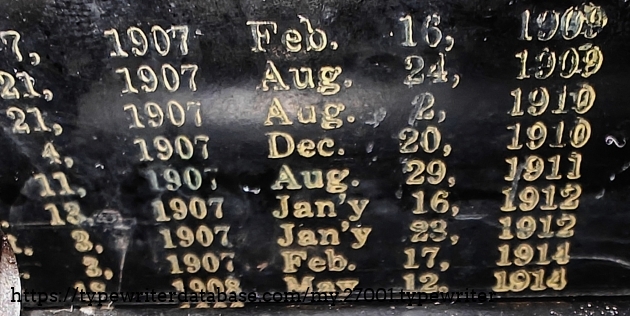 7, 1907 Feb. 16, 1909
21, 1907 Aug. 24, 1909
21, 1907 Aug. 2, 1910
4, 1907 Dec. 20, 1910
11, 1907 Aug. 29, 1911
1907 Jan'y 16, 1912
3, 1907 Jan'y 23, 1912
3, 1907 Feb. 17, 1914
1908 May 12, 1914
https://typewriterdatabase.com/my.27001.typewriter